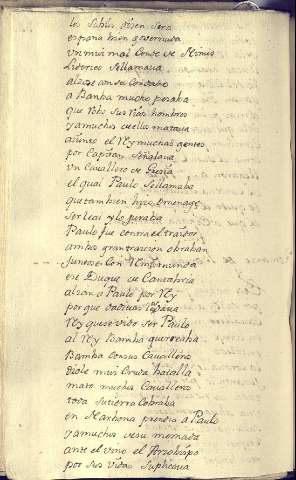 los sabios dizen sera
españa bien governada
un mui mal Conde de Nimis
Ilderico se llamava
alzose con su Condado
a Bamba mucho pesaba
que robo sus Ricos hombres
y a muchos dellos matava
ajunto el Rey muchas gentes
por Capitan señalava
un Cavallero de Grecia
el qual Paulo se llamaba
que tambien hizo omenage
ser leal y lo juraba
Paulo fue contra el traidor
ambos gran traicion obraban
juntose con
ese Duque de Cantabria
alzan a Paulo por Rey
porque
Rey que se vido ser Paulo
al Rey Bamba guerreaba
Bamba con sus Cavalleros
diole mui cruda batalla
mato muchos Cavalleros
toda su tierra Cobraba
en Narbona prendio a Paulo
y a muchos de su mesnada
ante el vino el Arzobispo
por sus vidas suplicava